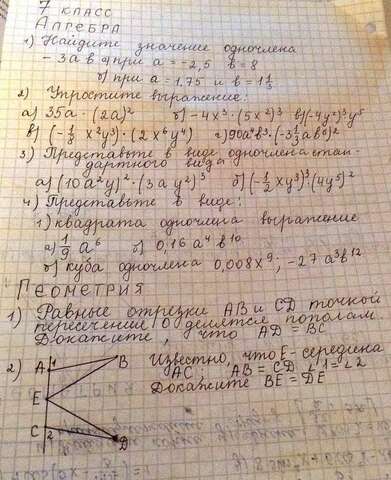 7 КЛАСС
АЛГЕБРА
1) Найдите значение одночлена
- 3ав при а = -2,5 в = 8
б) при а = 1,75 и в = 1 1/3
2) Упростите выражение:
а) 35а · (2а)² б) -4х³ · (5х²)³ в) (-4у²)³у⁵
в) (-1/8 х²у³) · (2х⁶у⁴) г) 90а⁴в³ · (-3 1/3 ав⁶)²
3) Представьте в виде одночлена стан
дартного вида
а) (10а²у)⁴ · (3ау²)³ б) (-1/2 ху³)³ · (4у⁵)²
4) Представьте в виде:
1) квадрата одночлена выражение
а) 1/9 а⁶ б) 0,16а⁴в¹⁰
б) куба одночлена 0,008х⁹; -27а³в¹²
ГЕОМЕТРИЯ
1) Равные отрезки АВ и СD точкой
пересечения О делятся пополам.
Докажите, что AD = BC
2) А 1 В Известно, что Е- середина
АС, АВ = CD ∠1 = ∠2
Е Докажите ВЕ = DE
С 2 D